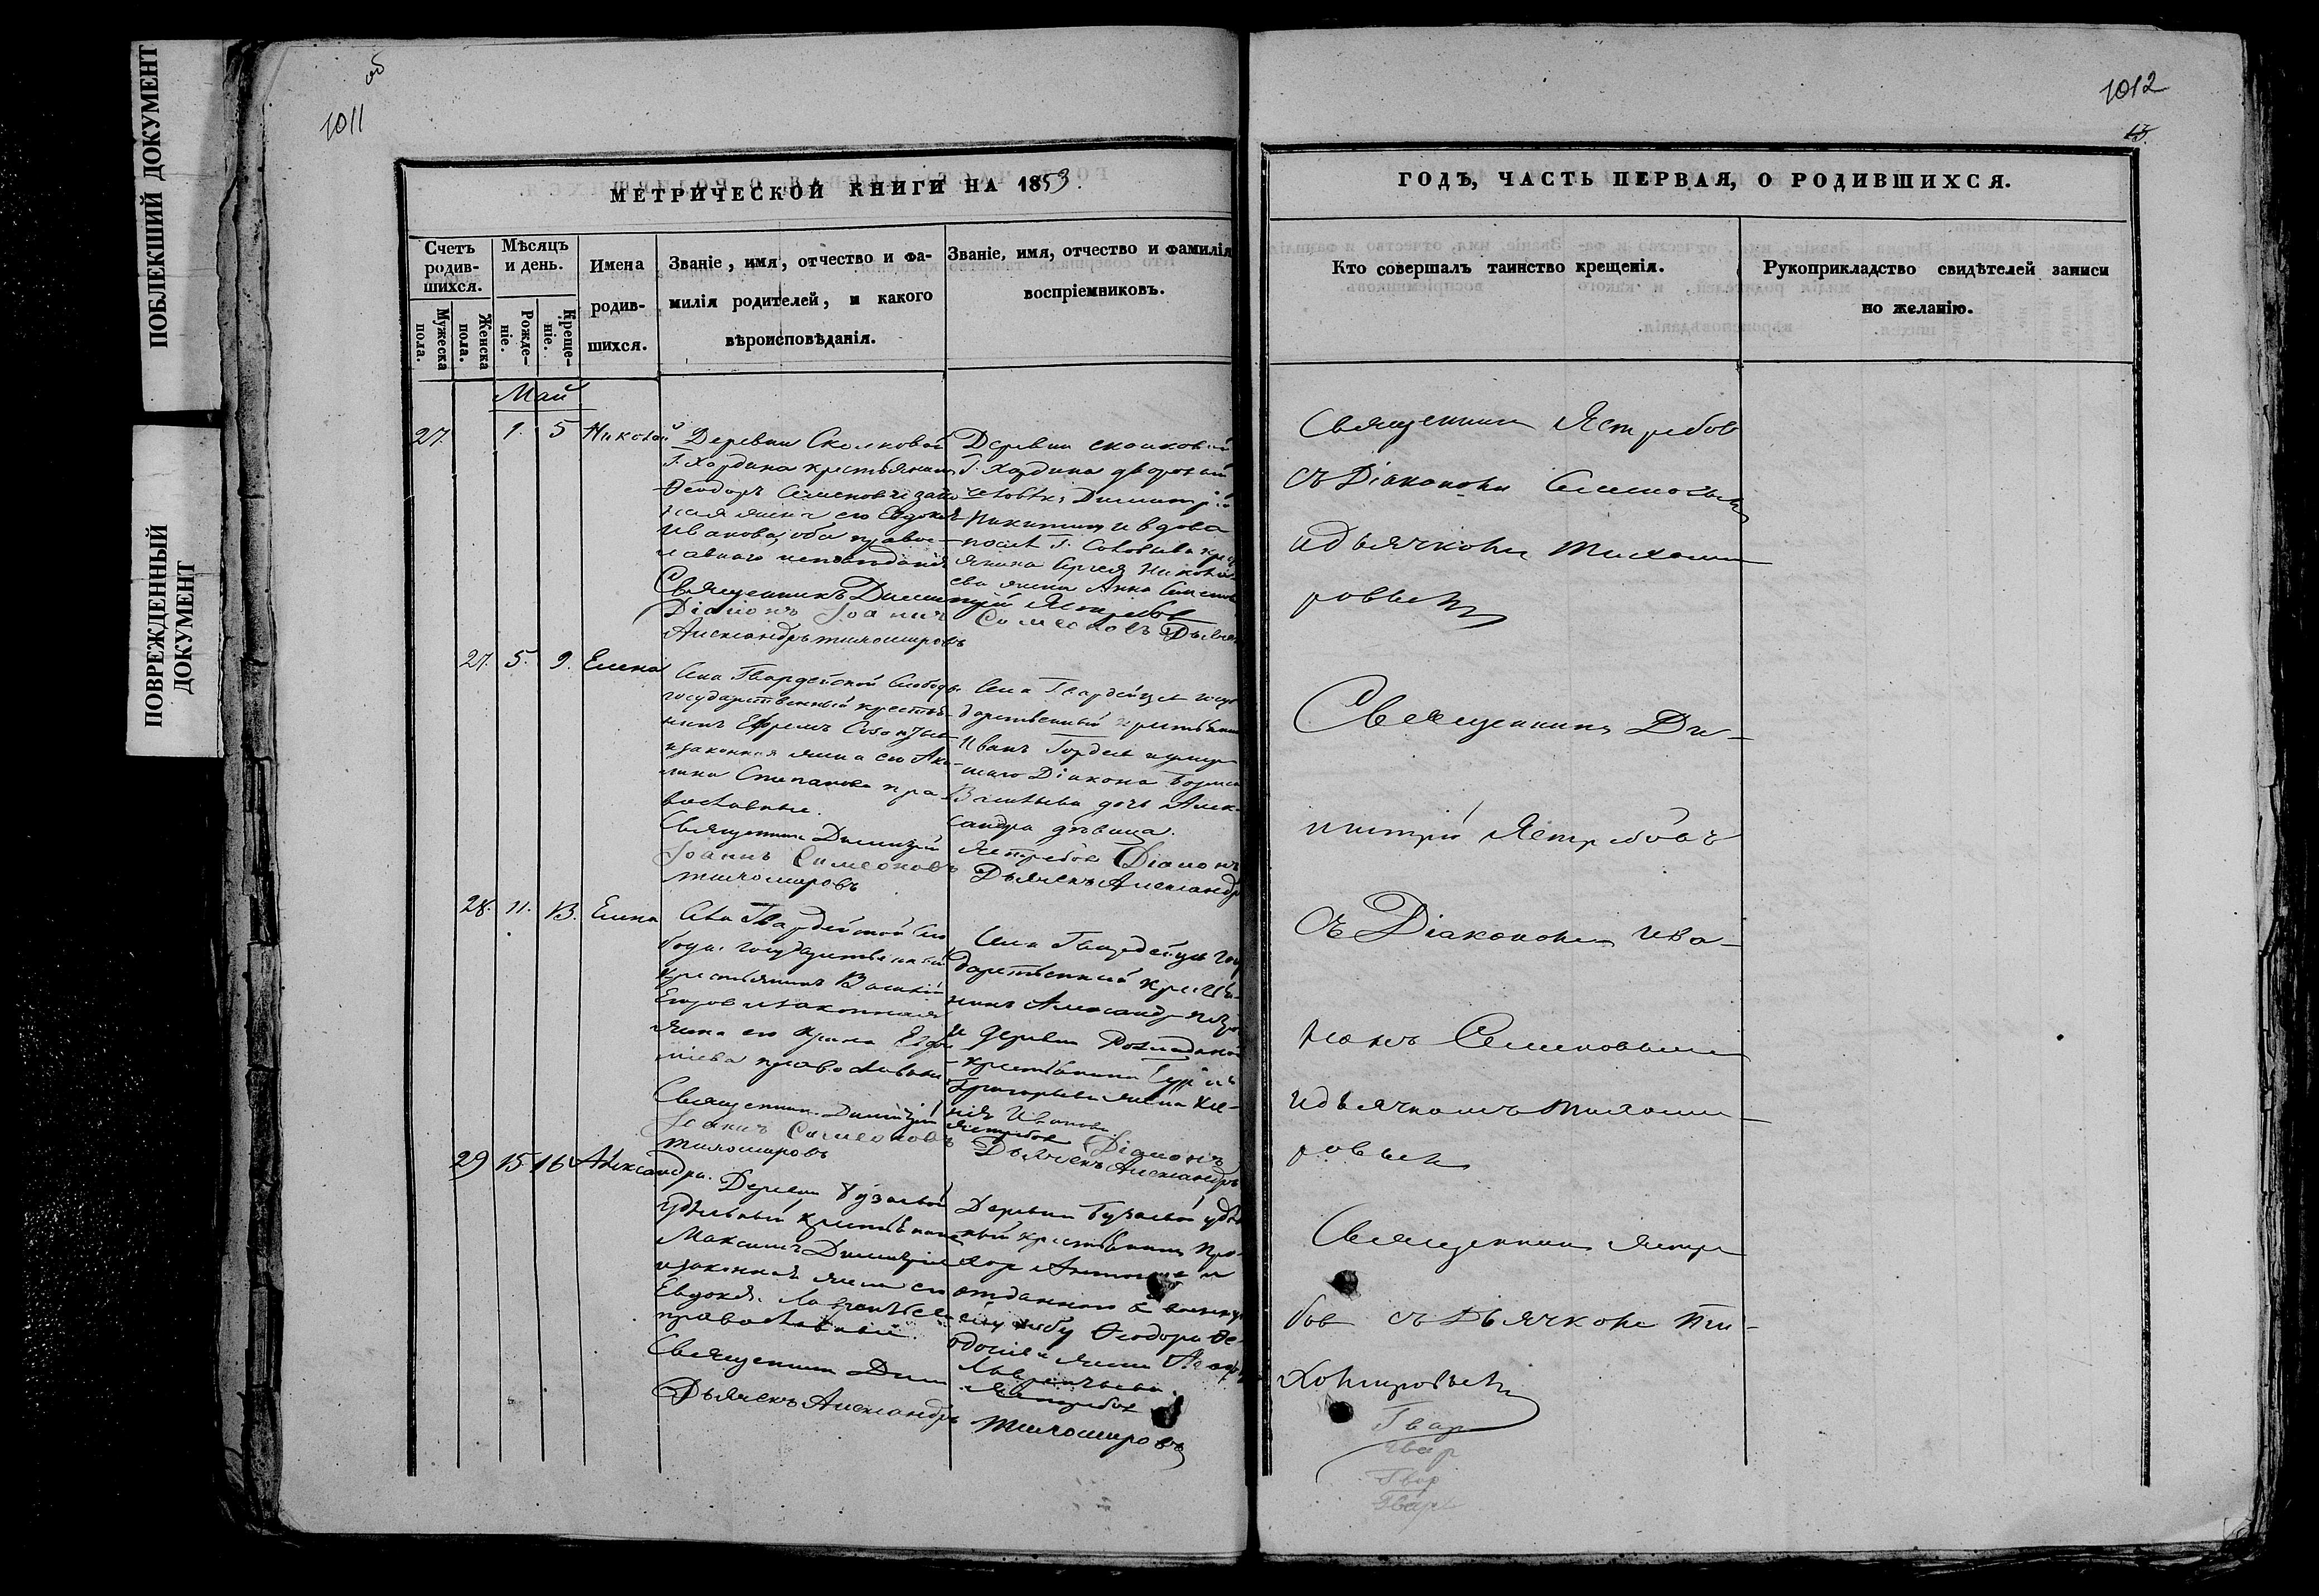 ПОБЛЕКШИЙ ДОКУМЕНТ
ПОВРЕЖДЕННЫЙ
ДОКУМЕНТ
об
1011
МЕТРИЧЕСКОЙ КНИГИ НА 1853.
Счетъ родив-шихся.
Мужеска пола.
Женска пола.
Мѣсяцъ и день.
Рожде-ніе.
Креще-ніе.
Имена родив-шихся.
Званіе, имя, отчество и фа-
милія родителей, и какого
вѣроисповѣданія.
Званіе, имя, отчество и фамилія
воспріемниковъ.
Май
27. 1. 5 Николай
Деревни Сколковой
Г. Хардина крестьянинъ
Ѳеодоръ Семеновъ и зако
ная жена его Евдокія
Иванова, оба правос-
лавнаго исповѣданія
Священникъ Димитрій Ястребовъ
Діаконъ Іоаннъ Симеоновъ Дьячек
Александръ Тихомировъ
Деревни Сколковой
Г. Хардина дворовый
человѣкъ Димитрій
Никитинъ и вдова
Г. Соловьева
Сергея Николае
ева жена Анна Семенова
27. 5. 9. Елена
Села Гвардейской Слободы
государственный крестья-
нинъ Ефремъ
и законная жена его Аку-
лина Степанова пра-
вославные.
Священникъ Димитрій Ястребовъ Діаконъ
Іоаннъ Симеоновъ Дьячекъ Александръ
Тихомировъ
Села Гвардейцевъ госу
дарственный крестьянинъ
Иванъ Гордеевъ и умер
шаго Діакона Бориса
Васильева дочь Алек-
сандра дѣвица.
28. 11. 13. Елена
Села Гвардейской Сло
боды государственный
крестьянинъ Василій
Егоровъ и законная
жена его Ирина Евдо
кимова православны
Священникъ Димитрій Ястребовъ Діаконъ
Іоаннъ Симеоновъ Дьячекъ Александръ
Тихомировъ
Села Гвардейцевъ госу
дарственный крестья-
нинъ Александръ Петро
и деревни
крестьянина
Григорьева жена Ксе-
нія Иванова
29 15 16 Александра.
Деревни Бузаевой
удѣльный крестьянинъ
Максимъ Димитріевъ
и законная жена его
Евдокія Лаврентьева
православный.
Священникъ Дим Ястребовъ
Дьячекъ Александръ Тихомировъ
Деревни Бузаевой удѣль
ный крестьянинъ Про-
хоръ Антоновъ и
отданнаго въ военну
службу Ѳеодора Ѳе-
досіева жена
Лаврентьева.
1012
13.
ГОДЪ, ЧАСТЬ ПЕРВАЯ, О РОДИВШИХСЯ.
Кто совершалъ таинство крещенія.
Рукоприкладство свидѣтелей записи
по желанію.
Священникъ Ястребовъ
съ Діакономъ Семеновымъ
и дьячкомъ Тихоми-
ровымъ
Священникъ Ди-
митрій Ястребовъ
съ Діакономъ Ива-
номъ Семеновымъ
и дьячкомъ Тихоми-
ровымъ
Священникъ Ястре
бовъ съ Дьячкомъ Ти-
хомировымъ
Гвар
Гвар
Гвар
Гвар